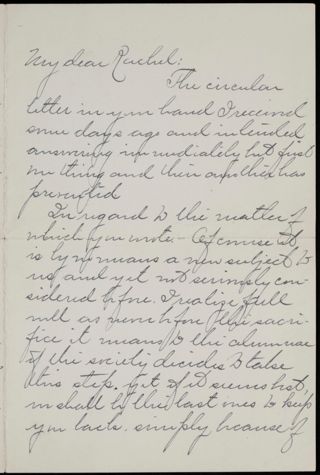 My dear Rachel:
The circular
letter in your hand I received
some days ago and intended
answering immediately but first
one thing and then another has
prevented
In regard to the matter of
which you wrote - Of course it
is by no means a new subject to
us, and yet not seriously con-
sidered before. I realize full
well as never before the sacri-
fice it means to the alumnae
if the society decides to take
this step. Yet if it seems best,
we shall be the last ones to keep
you back, simply because of